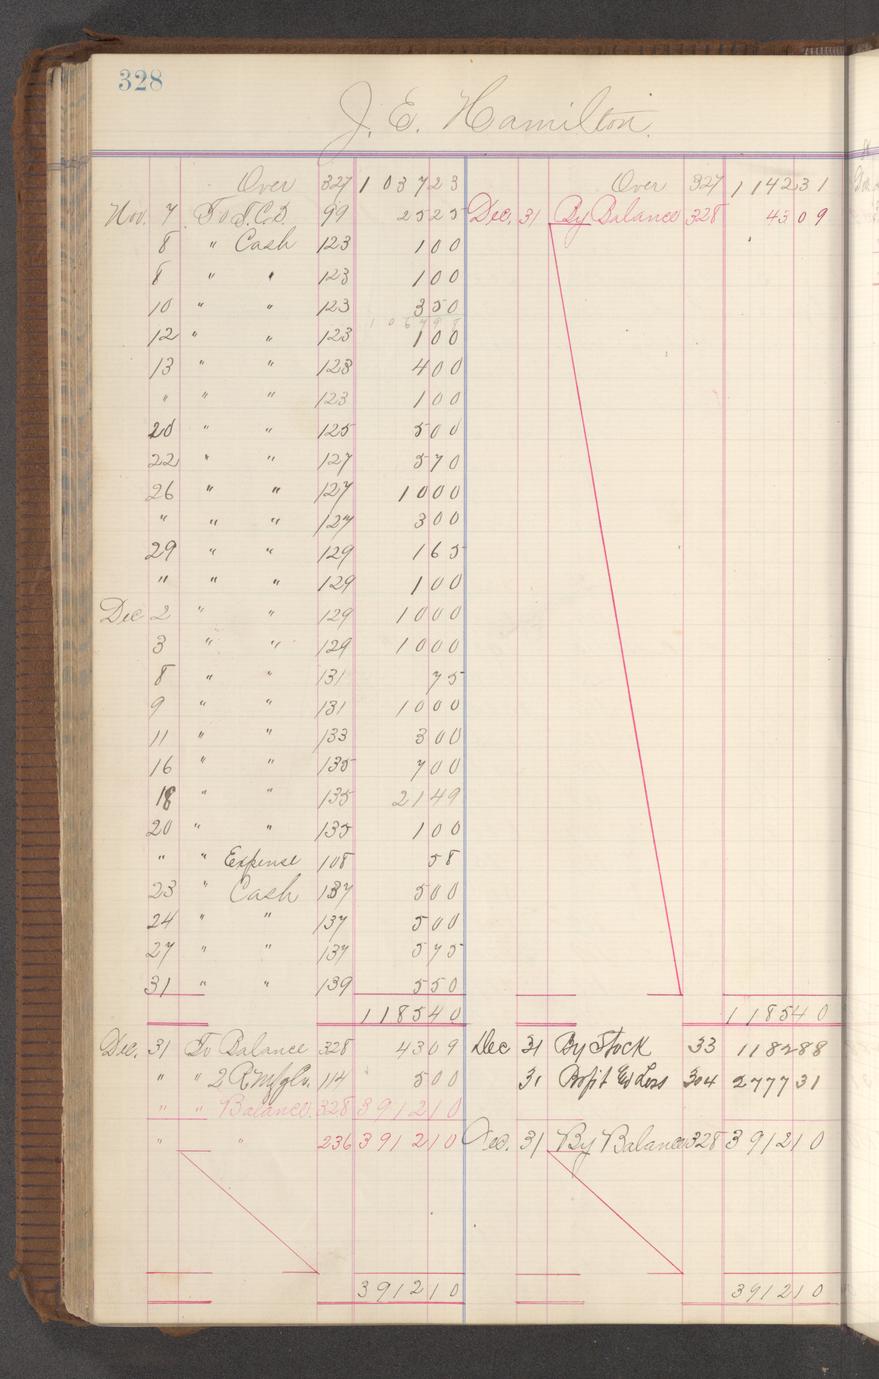 328
J. E. Hamilton.
Over 327 1 037 23 Over 327 1 142 31
Nov. 7 To T.C.D. 99 25 25 Dec. 31 By Balance 328 43 09
8 " Cash 123 1 00
8 " " 123 1 00
10 " " 123 3 50
1 067 98
12 " " 123 1 00
13 " " 123 4 00
" " " 123 1 00
20 " " 125 5 00
22 " " 127 5 70
26 " " 127 10 00
" " " 127 3 00
29 " " 129 1 65
" " " 129 1 00
Dec 2 " " 129 10 00
3 " " 129 10 00
8 " " 131 75
9 " " 131 10 00
11 " " 133 3 00
16 " " 135 7 00
18 " " 135 21 49
20 " " 135 1 00
" " Expense 108 58
23 " Cash 137 5 00
24 " " 137 5 00
27 " " 137 5 75
31 " " 139 5 50
1 185 40 1 185 40
Dec. 31 To Balance 328 43 09 Dec 31 By Stock 33 1 182 88
" " 2 R Mfg Co. 114 5 00 31 Profit & Loss 304 2 777 31
" " Balance. 328 3 912 10
" " 236 3 912 10 Dec. 31 By Balance 328 3 912 10
3 912 10 3 912 10